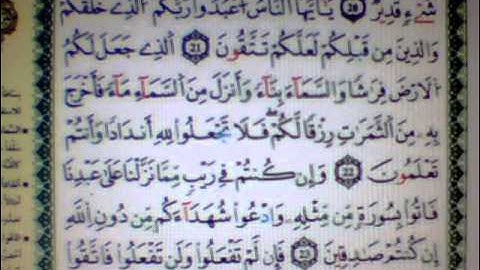 شَيْءٍ قَدِيرٌ ٢٠ يَٰٓأَيُّهَا ٱلنَّاسُ ٱعْبُدُوا۟ رَبَّكُمُ ٱلَّذِى خَلَقَكُمْ
وَٱلَّذِينَ مِن قَبْلِكُمْ لَعَلَّكُمْ تَتَّقُونَ ٢١ ٱلَّذِى جَعَلَ لَكُمُ
ٱلْأَرْضَ فِرَٰشًا وَٱلسَّمَآءَ بِنَآءً وَأَنزَلَ مِنَ ٱلسَّمَآءِ مَآءً فَأَخْرَجَ
بِهِۦ مِنَ ٱلثَّمَرَٰتِ رِزْقًا لَّكُمْ ۖ فَلَا تَجْعَلُوا۟ لِلَّهِ أَندَادًا وَأَنتُمْ
تَعْلَمُونَ ٢٢ وَإِن كُنتُمْ فِى رَيْبٍ مِّمَّا نَزَّلْنَا عَلَىٰ عَبْدِنَا
فَأْتُوا۟ بِسُورَةٍ مِّن مِّثْلِهِۦ وَٱدْعُوا۟ شُهَدَآءَكُم مِّن دُونِ ٱللَّهِ
إِن كُنتُمْ صَٰدِقِينَ ٢٣ فَإِن لَّمْ تَفْعَلُوا۟ وَلَن تَفْعَلُوا۟ فَٱتَّقُوا۟